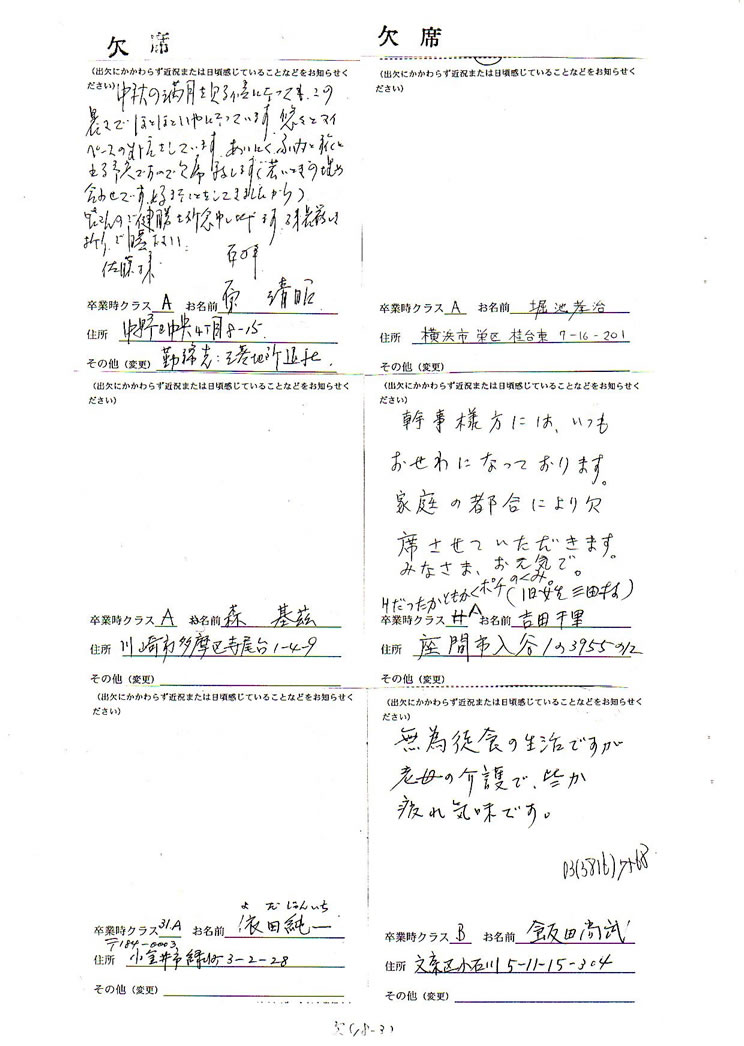 欠席
(出欠にかかわらず近況または日頃感じていることなどをお知らせく
ださい)
中秋の満月を見る候になっても、この
暑さでほとほといやになっています。悠々とマイ
ペースの
をしています。あいにく
予定ですので欠席
合わせです。
皆さんのご健勝を祈念申し上げます。
佐藤様
卒業時クラス A お名前 原 靖昭
住所 中野区中央4丁目8-15
その他(変更) 勤務先:
欠席
(出欠にかかわらず近況または日頃感じていることなどをお知らせく
ださい)
卒業時クラス A お名前 堀池孝治
住所 横浜市栄区桂台東 7-16-201
その他(変更)
(出欠にかかわらず近況または日頃感じていることなどをお知らせく
ださい)
卒業時クラス A お名前 森 基
住所 川崎市多摩区寺尾台1-4-9
その他(変更)
(出欠にかかわらず近況または日頃感じていることなどをお知らせく
ださい)
幹事様方には、いつも
おせわになっております。
家庭の都合により欠
席させていただきます。
みなさま、お元気で。
Hだったかともかくポチのくみ。
(旧姓 三田村)
卒業時クラス A お名前 吉田千里
住所 座間市入谷1の3955の12
その他(変更)
(出欠にかかわらず近況または日頃感じていることなどをお知らせく
ださい)
よだじゅんいち
卒業時クラス 31A お名前 依田純一
〒184-0003
住所 小金井市緑町3-2-28
その他(変更)
(出欠にかかわらず近況または日頃感じていることなどをお知らせく
ださい)
無為徒食の生活ですが
老母の介護で、些か
疲れ気味です。
03(3816)
卒業時クラス B お名前 飯田尚武
住所 文京区小石川5-11-15-304
その他(変更)